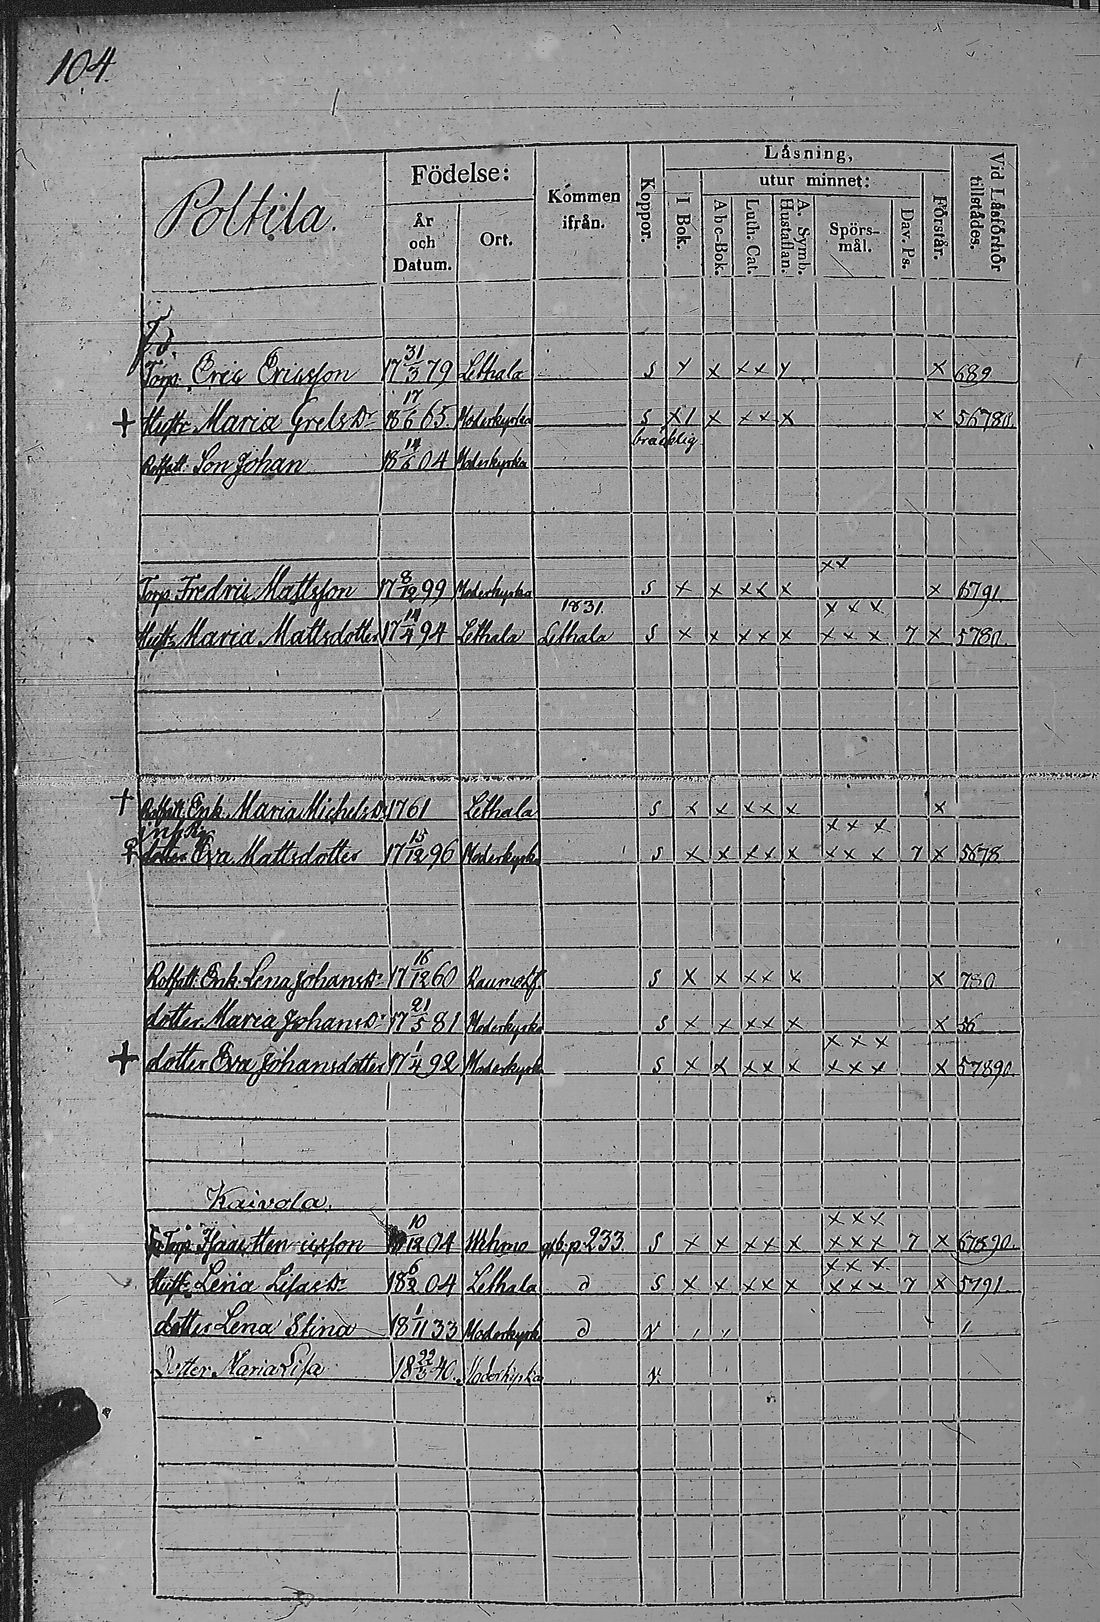 104
Poltila.
Födelse:
År och Datum.
Ort.
Kommen ifrån.
Koppor.
Låsning,
I Bok.
utur minnet:
Abc-Bok.
Luth. Cat.
A. Symb. Hustaflan.
Spörs-mål.
Dav. Ps.
Förstår.
Vid Låsförhör tillstådes.
f.d.
Torp. Eric Ericsson 17 31/3 79 Lethala S x x x x x 689
+ Hustr. Maria Grels Dr 6/17 65 Moderkyrka S x 1 x x x x x 56780.
Son Johan 18 04 Moderkyrka
x x
Torp. Fredric Mattsson 17 8/12 99 Moderkyrka S x x x x x x 6791.
1831. x x x
Hustr. Maria Mattsdotter 17 94 Lethala Lethala S x x x x x x x x 7 x 5780.
+ Enk. Maria Michels Dr 1761 Lethala S x x x x x x
x x x
dotter Eva Mattsdotter 17 15/12 96 Moderkyrka S x x x x x x x x 7 x 5678
Enk. Lena Johans Dr 17 16/12 60 S x x x x x x 780
dotter Maria Johans Dr 17 21/5 81 Moderkyrka S x x x x x x 56
x x x
+ dotter Eva Johansdotter 17 1/4 92 Moderkyrka S x x x x x x x x x 57890.
Kaivola.
x x x
Torp. 10/12 04 Wehmo p. 233. S x x x x x x x x 7 x 67890.
x x x
Hustr. Lena Lisas Dr 18 6/2 04 Lethala d S x x x x x x x x 7 x 5791
dotter Lena Stina 18 1/11 33 Moderkyrk d v
Dotter Maria Lisa 18 40. Moderkyrka v